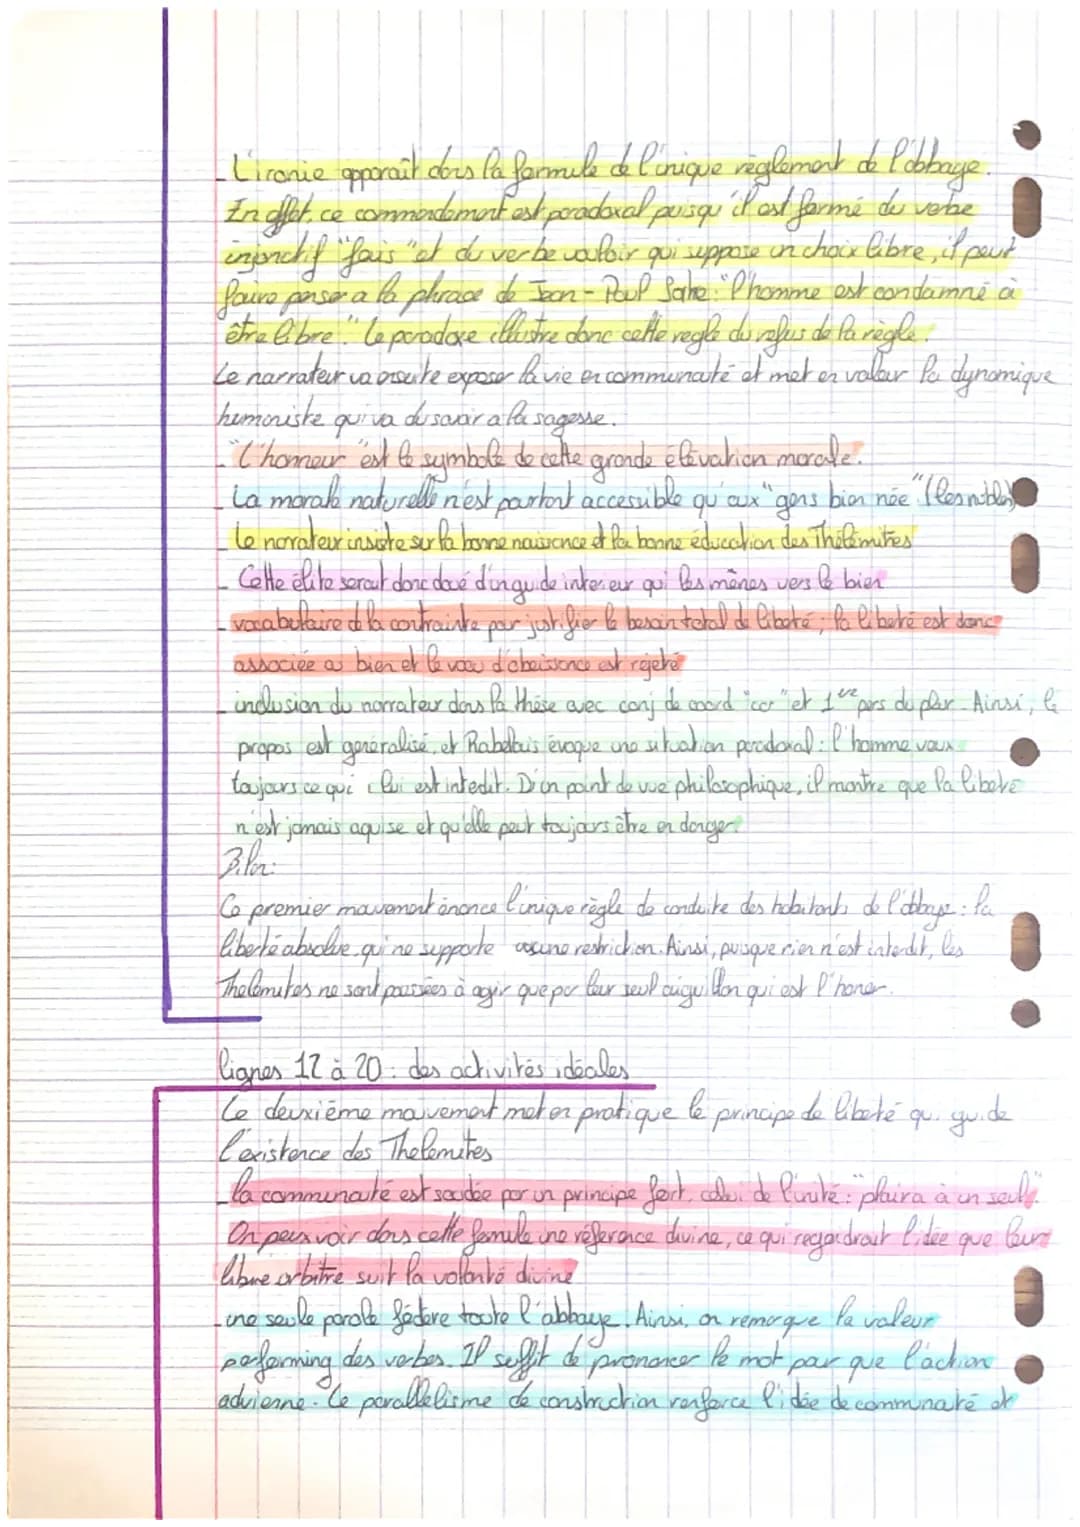 - L'ironie apparaît dans la formule de l'unique règlement de l'abbaye.
En effet, ce commandement est paradoxal puisqu'il est formé du verbe
injonctif "fais" et du verbe vouloir qui suppose un choix libre, il peut
faire penser a la phrase de Jean-Paul Satre : "l'homme est condamné à
être libre". Le paradoxe illustre donc cette regle du refus de la règle.
Le narrateur va ensuite exposer la vie en communauté et met en valeur la dynamique
humaniste qui va du savoir a la sagesse.
- "L'honneur" est le symbole de cette grande élévation morale.
- La morale naturelle n'est pourtant accessible qu'aux "gens bien née" (les nobles)
- Le narrateur insiste sur la bonne naissance et la bonne éducation des Thélémites
- Cette élite serait donc doué d'un guide interieur qui les mènes vers le bien
- vocabulaire de la contrainte pour justifier le besoin total de liberté ; la liberté est donc
associée au bien et le voeu d'obeissence est rejeté
- inclusion du narrateur dans la thèse avec conj de coord "car" et 1ère pers du plur. Ainsi, le
propos est généralisé, et Rabelais évoque une situation paradoxal : l'homme veux
toujours ce qui lui est interdit. D'un point de vue philosophique, il montre que la liberté
n'est jamais aquise et qu'elle peut toujours être en danger.
Bilan:
Ce premier mouvement énonce l'unique règle de conduite des habitants de l'abbaye : la
liberté absolue qui ne supporte aucune restriction. Ainsi, puisque rien n'est interdit, les
Thelemites ne sont poussées à agir que par leur seul aiguillon qui est l'honer.
lignes 12 à 20 : des activités idéales
Le deuxième mouvement met en pratique le principe de liberté qui guide
l'existence des Thelemites
- la communauté est soudée par un principe fort, celui de l'unité : "plaira à un seul".
On peux voir dans cette formule une réference divine, ce qui regoidrait l'idée que leur
libre arbitre suit la volonté divine
- une seule parole fédere toute l'abbaye. Ainsi, on remarque la valeur
performing des verbes. Il suffit de prononcer le mot pour que l'action
advienne. Le parallelisme de construction renforce l'idée de communauté et